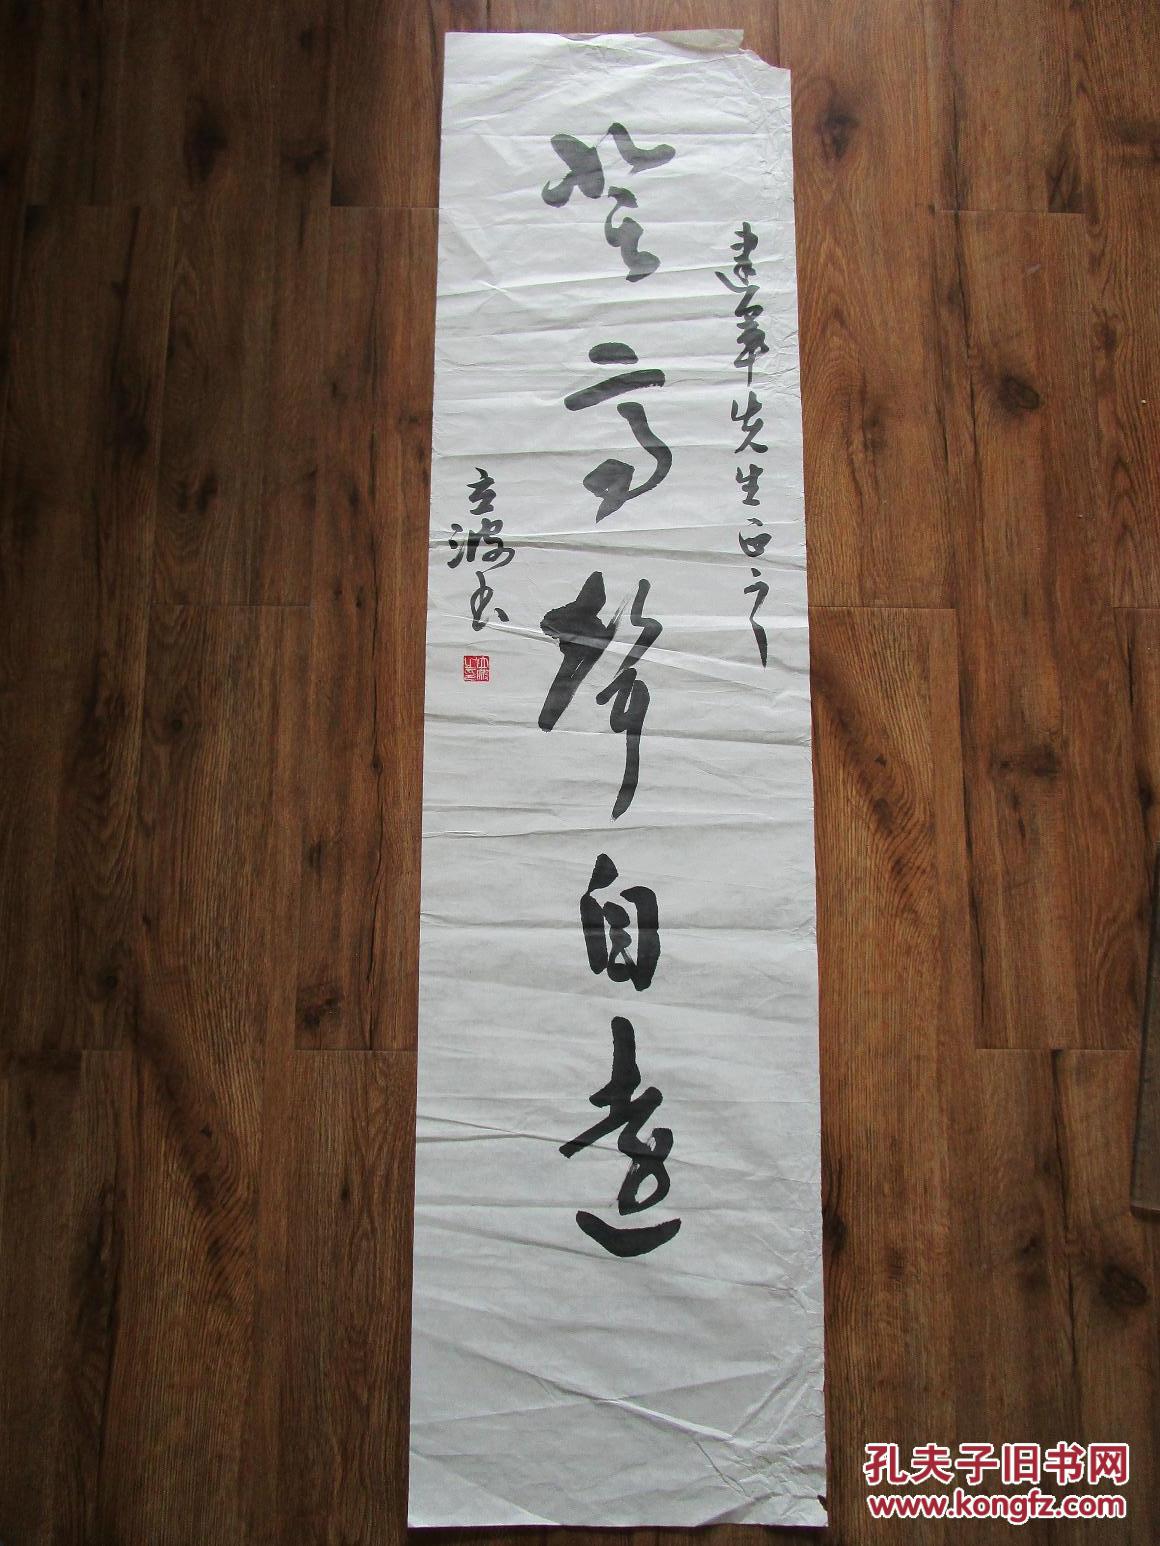 建军先生正之
登高声自远
立波书
孔夫子旧书网
www.kongfz.com